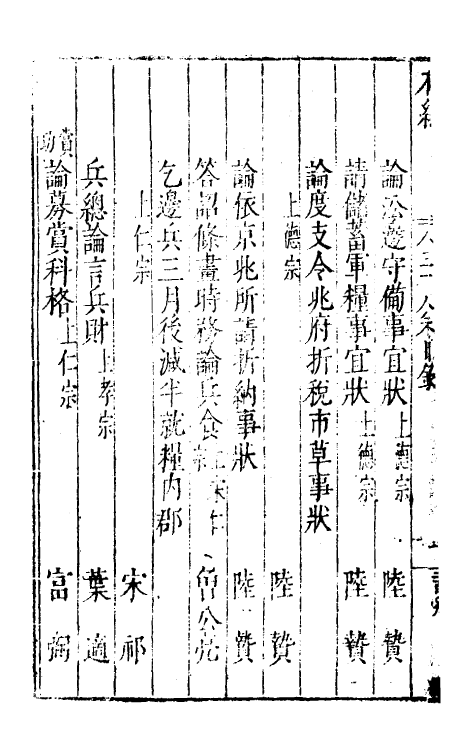 論㳂邊守備事宜狀 上德宗 陸贄
請儲蓄軍糧事宜狀 上德宗 陸贄
論度支令兆府折稅市草事狀
上德宗 陸贄
論依京兆所請折納事狀 陸贄
答詔條畫時務論兵食 曾公亮
乞邊兵三月後減半就糧內郡
上仁宗 宋祁
兵總論言兵財 上孝宗 葉適
賞功 論募賞科格 上仁宗 富弼